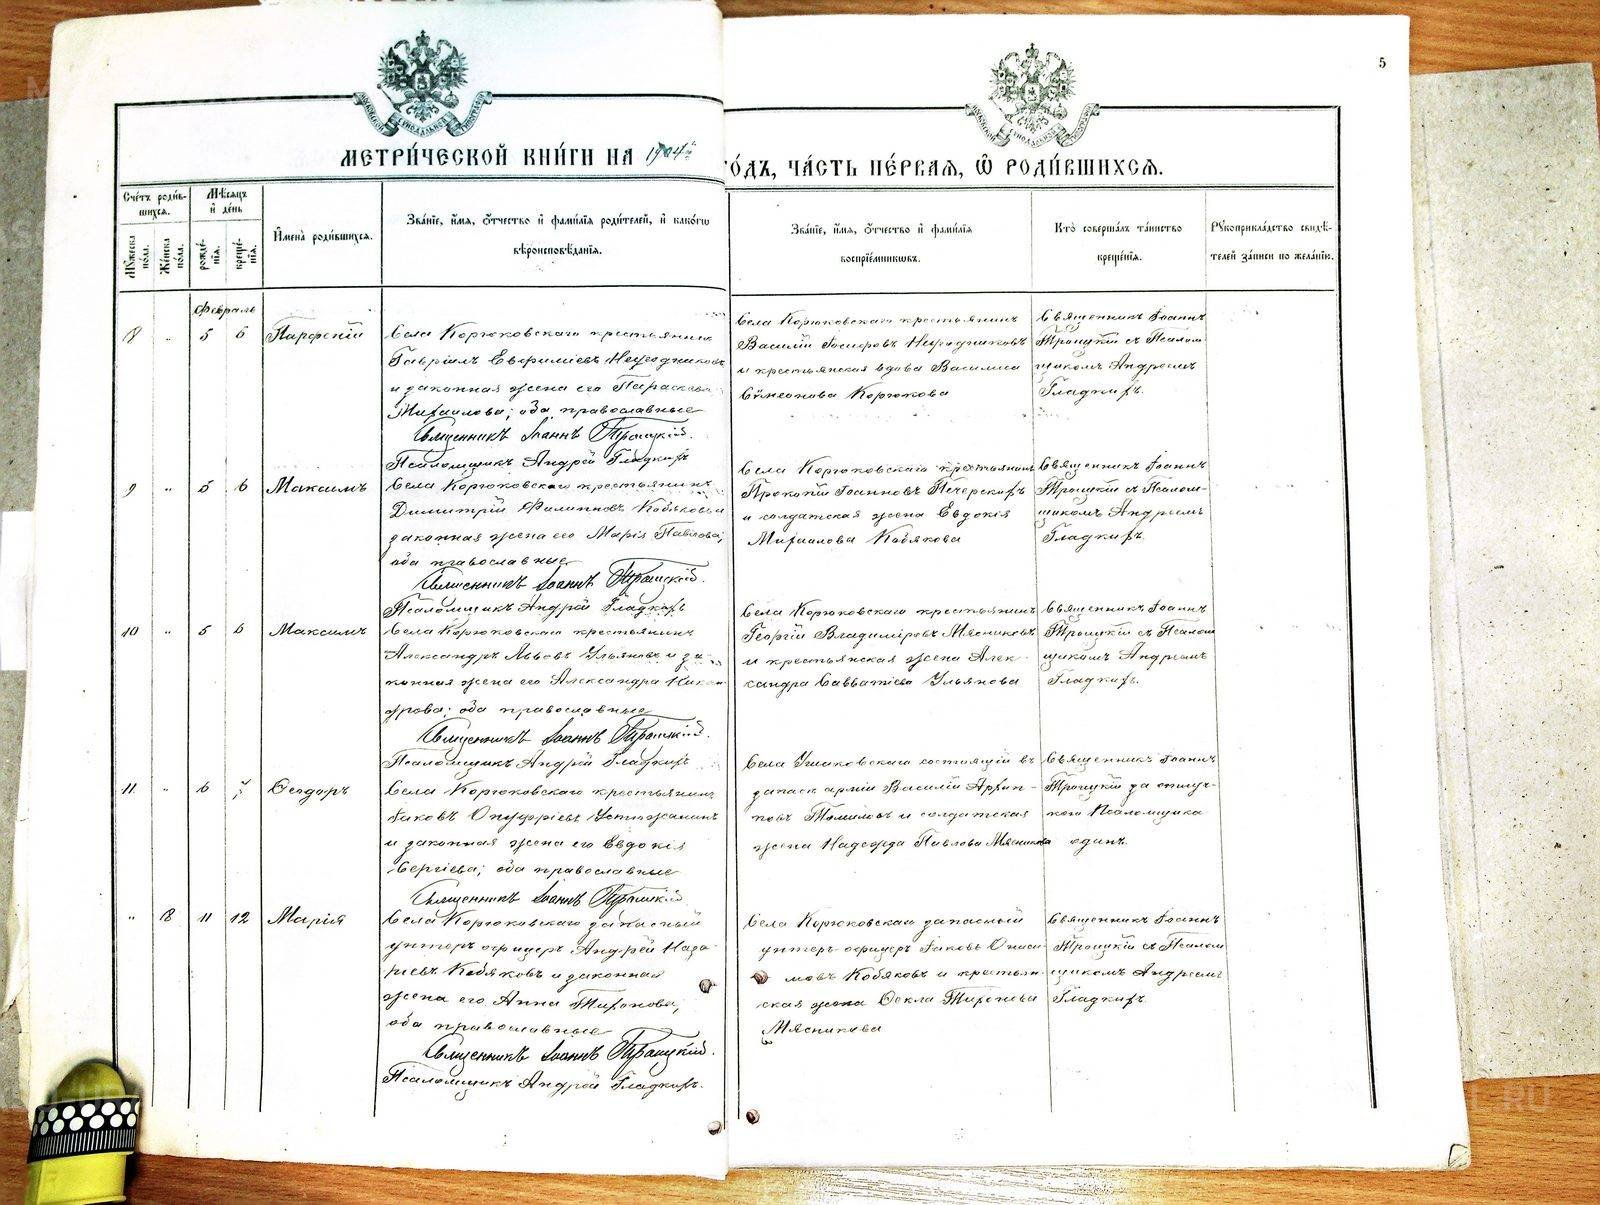 5
МЕТРИ́ЧЕСКОЙ КНИ́ГИ НА 1904й
ГО́ДЪ, ЧА́СТЬ ПЕ́РВАЯ, Ѽ РОДИ́ВШИХСѦ.
Сче́тъ роди́в-
шихсѧ.
Мꙋ́жеска по́ла.
Же́нска по́ла.
Мѣ́сѧцъ и҆ де́нь
рожде́-нїѧ.
креще́-нїѧ.
И҆мена̀ роди́вшихсѧ.
Зва́нїе, и҆́мѧ, ѻ҆́тчество и҆ фами́лїѧ роди́телей, и҆ како́гѡ
вѣроисповѣ́данїѧ.
Зва́нїе, и҆́мѧ, ѻ҆́тчество и҆ фами́лїѧ
воспрїе́мникѡвъ.
Кто̀ соверша́лъ та́инство
креще́нїѧ.
Рꙋкоприкла́дство свидѣ́-
телей за́писи по жела́нїю.
Февраль
8 " 5 6 Парфеній
Села Корюковскаго крестьянинъ
Гавріилъ Евфиміевъ
и законная жена его Параскева
Михаилова; оба православные
Священникъ Іоаннъ Троицкій.
Псаломщикъ Андрей Гладкихъ
Села Корюковскаго крестьянинъ
Василій
и крестьянская вдова Василиса
Сѵмеонова Корюкова
Священникъ Іоаннъ
Троицкій съ Псалом-
щикомъ Андреемъ
Гладкихъ.
9 " 5 6 Максимъ
Села Корюковскаго крестьянинъ
Димитрій Филиповъ Кобяковъ и
законная жена его Марія Павлова;
оба православные
Священникъ Іоаннъ Троицкій.
Псаломщикъ Андрей Гладкихъ
Села Корюковскаго крестьянинъ
Прокопій Іоанновъ Печерскихъ
и солдатская жена Евдокія
Михаилова Кобякова
Священникъ Іоаннъ
Троицкій съ Псалом-
щикомъ Андреемъ
Гладкихъ.
10 " 5 6 Максимъ
Села Корюковскаго крестьянинъ
Александръ Львовъ Ульяновъ и за-
конная жена его Александра Никан-
орова; оба православные
Священникъ Іоаннъ Троицкій.
Псаломщикъ Андрей Гладкихъ
Села Корюковскаго крестьянинъ
Георгій Владиміровъ Мясниковъ
и крестьянская жена Алек-
сандра Савватіева Ульянова
Священникъ Іоаннъ
Троицкій съ Псалом
щикомъ Андреемъ
Гладкихъ.
11 " 6 7 Ѳеодоръ
Села Корюковскаго крестьянинъ
Іаковъ Онуфріевъ Устюжанинъ
и законная жена его Евдокія
Сергіева; оба православные
Священникъ Іоаннъ Троицкій
Села Ушаковскаго состоящій въ
запасѣ арміи Василій Архип-
повъ Томиловъ и солдатская
жена Надежда Павлова Мясникова
Священникъ Іоаннъ
Троицкій за отлуч-
кою Псаломщика
одинъ.
" 8 11 12 Марія
Села Корюковскаго запасный
унтеръ офицеръ Андрей Наза-
ріевъ Кобяковъ и законная
жена его Анна Тихонова;
оба православные
Священникъ Іоаннъ Троицкій.
Псаломщикъ Андрей Гладкихъ.
Села Корюковскаго запасный
унтеръ офицеръ Іаковъ Ониси-
мовъ Кобяковъ и крестьян-
ская жена Ѳекла
Мясникова
Священникъ Іоаннъ
Троицкій съ Псалом
щикомъ Андреемъ
Гладкихъ